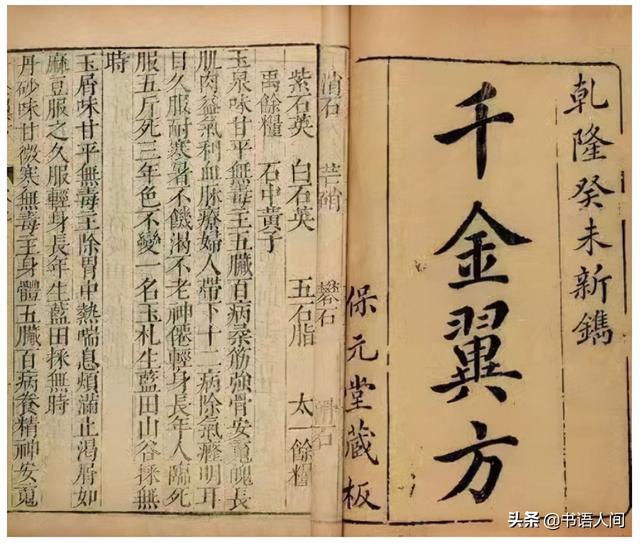 乾隆癸未新鐫
千金翼方
保元堂藏板
消石 芒硝 礬石 滑石
紫石英 白石英 五石脂 太一餘糧
禹餘糧 石中黃子
玉泉味甘平無毒主五臟百病柔筋強骨安䰟魄長
肌肉益氣利血脉療婦人帶下十二病除氣癃明耳
目久服耐寒暑不饑渴不老神僊輕身長年人臨死
服五斤死三年色不變 名玉札生藍田山谷採無
時
玉屑味甘平無毒主除胃中熱喘息煩滿止渴屑如
麻豆服之久服輕身長年生藍田採無時
丹砂味甘微寒無毒主身體五臟百病養精神安䰟
头条 @书语人间